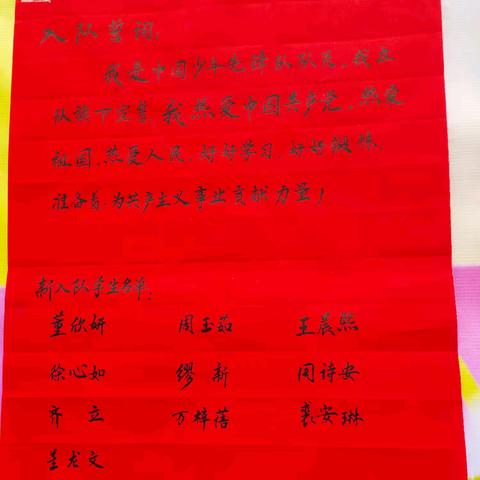 入队誓词：
我是中国少年先锋队队员。我在
队旗下宣誓，我热爱中国共产党，热爱
祖国，热爱人民，好好学习，好好锻炼，
准备着，为共产主义事业贡献力量！
新入队学生名单：
董欣妍 周玉茹 王晨熙
徐心如 缪新 周诗安
齐立 万梓蓓 裴安琳
龙文